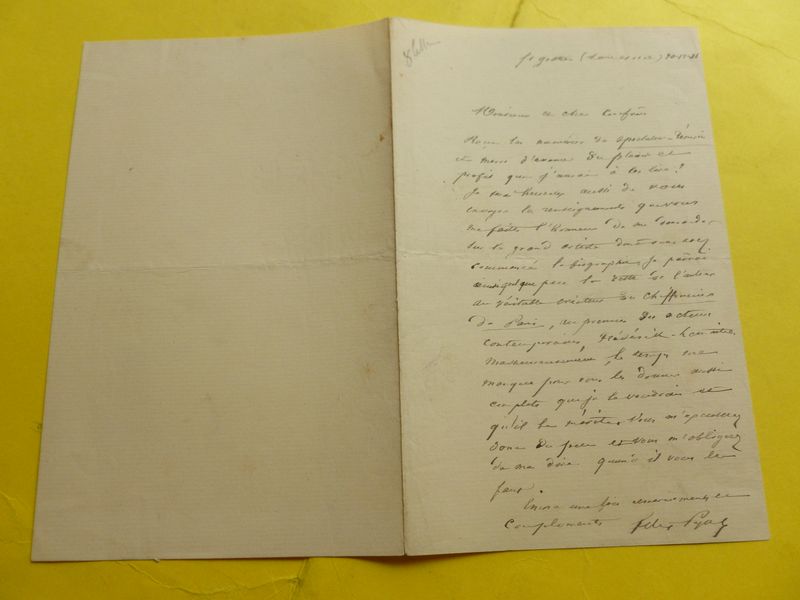 Monsieur et cher Confrère
Reçu les numéros du Spectateur
et merci d'avance du plaisir et
profit que j'aurai à les lire!
Je me aussi de vous
envoyer les renseignements que vous
me faites l'honneur de me demander
sur le grand artiste dont vous avez
commencé la biographie. Je
quelque peu la dette de l'auteur
au véritable créateur du Chiffonnier
de Paris, au premier des acteurs
contemporains, Frédérick-Lemaître.
Malheureusement, le temps me
manque pour vous les donner aussi
complets que je le voudrais et
qu'il le mérite. Vous m'excuserez
donc du peu et vous m'obligerez
de me dire quand il vous les
faut.
Encore une fois remerciements et
compliments Félix Pyat